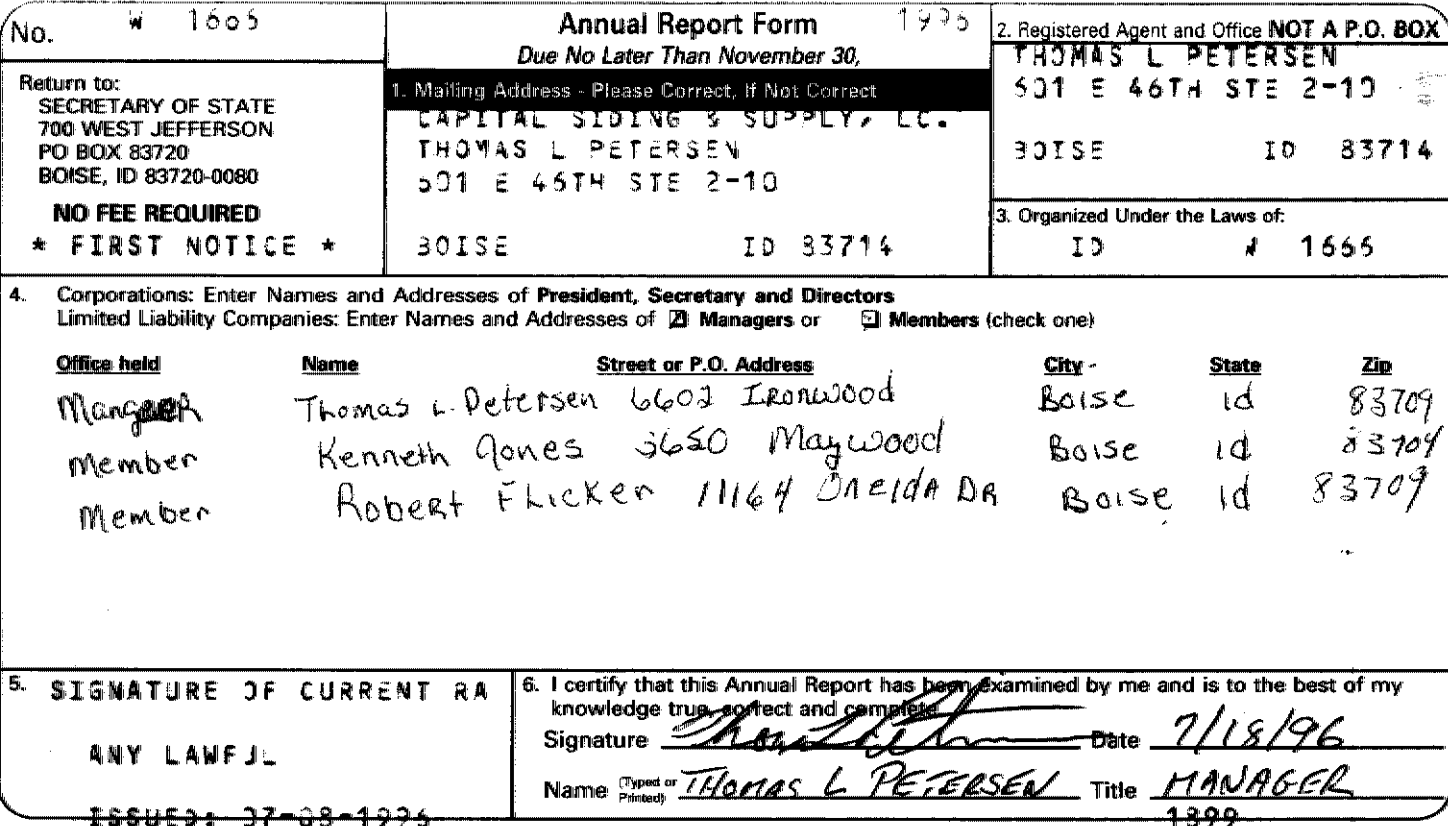 No. W
Annual Report Form
Due No Later Than November 30,
Return to:
SECRETARY OF STATE
700 WEST JEFFERSON
PO BOX 83720
BOISE, ID 83720-0080
NO FEE REQUIRED
* FIRST NOTICE *
1. Mailing Address - Please Correct, If Not Correct
CAPITAL SIDING & SUPPLY, LC.
THOMAS L PETERSEN
E 46TH STE 2-10
BOISE ID 83714
2. Registered Agent and Office NOT A P.O. BOX
THOMAS L PETERSEN
E 46TH STE 2-10
BOISE ID 83714
3. Organized Under the Laws of:
ID W 1666
4. Corporations: Enter Names and Addresses of President, Secretary and Directors
Limited Liability Companies: Enter Names and Addresses of Managers or Members (check one)
Office held Name Street or P.O. Address City State Zip
Thomas L. Petersen 6602 Ironwood Boise id 83709
Member Kenneth Jones 3650 Maywood Boise id
Member Robert Flicker 11164 Oneida DR Boise id 83709
5. SIGNATURE OF CURRENT RA
ANY LAWFUL
ISSUED: 07-08-1996
6. I certify that this Annual Report has been examined by me and is to the best of my
knowledge true, correct and complete
Signature Date 7/18/96
Name (Typed or Printed) THOMAS L PETERSEN Title MANAGER
1899